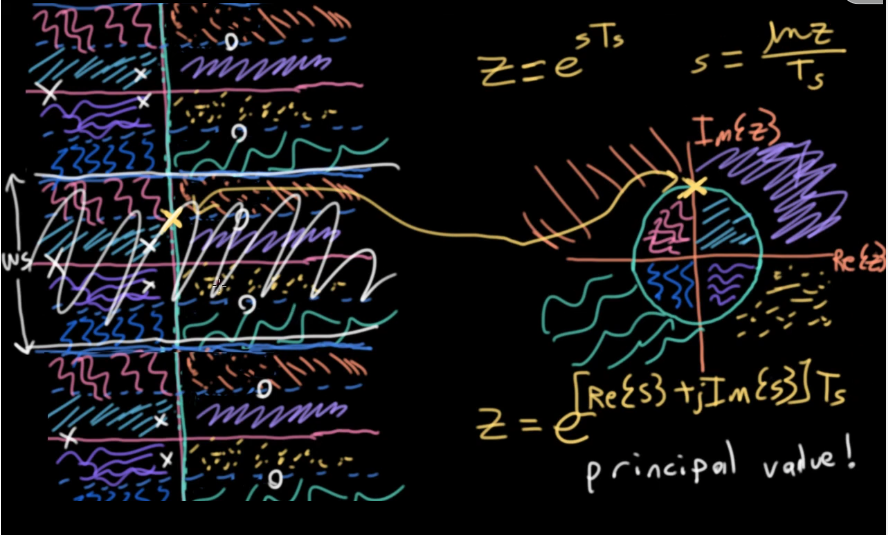 z = e^{sTs}
s = ln z / Ts
Im{z}
ws
Re{z}
z = e^{[Re{s} + jIm{s}]Ts}
principal value!